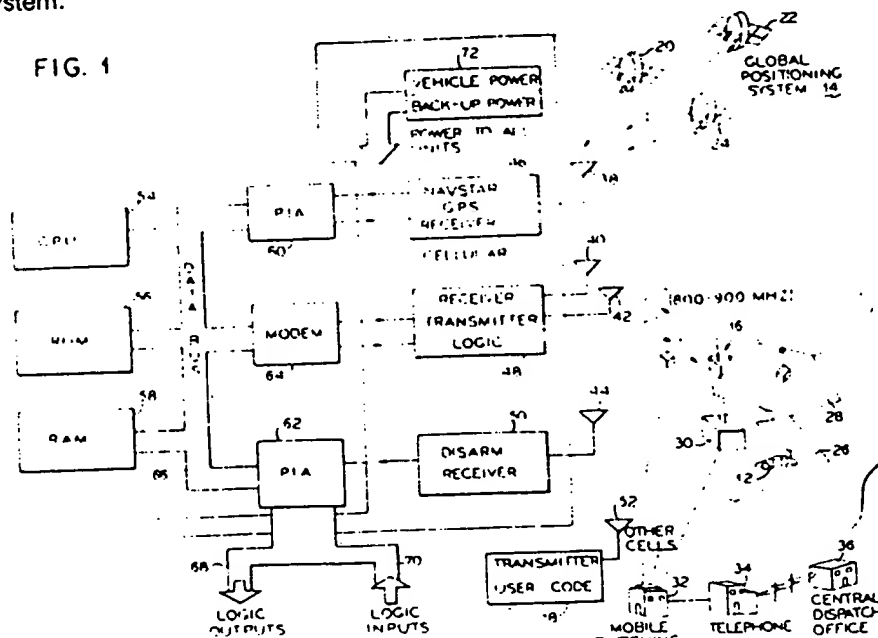 ystem.
FIG. 1
72
VEHICLE POWER
BACK-UP POWER
POWER TO ALL
UNITS
20
22
GLOBAL
POSITIONING
SYSTEM 14
24
54
CPU
PIA
60
46
NAVSTAR
GPS
RECEIVER
38
CELLULAR
DATA
BUS
56
ROM
MODEM
64
RECEIVER
TRANSMITTER
LOGIC
48
40
42
(800-900 MHZ)
16
58
RAM
62
PIA
66
50
DISARM
RECEIVER
44
30
28
26
12
68
70
LOGIC
OUTPUTS
LOGIC
INPUTS
52
TRANSMITTER
USER CODE
18
OTHER
CELLS
32
MOBILE
34
TELEPHONE
36
CENTRAL
DISPATCH
OFFICE